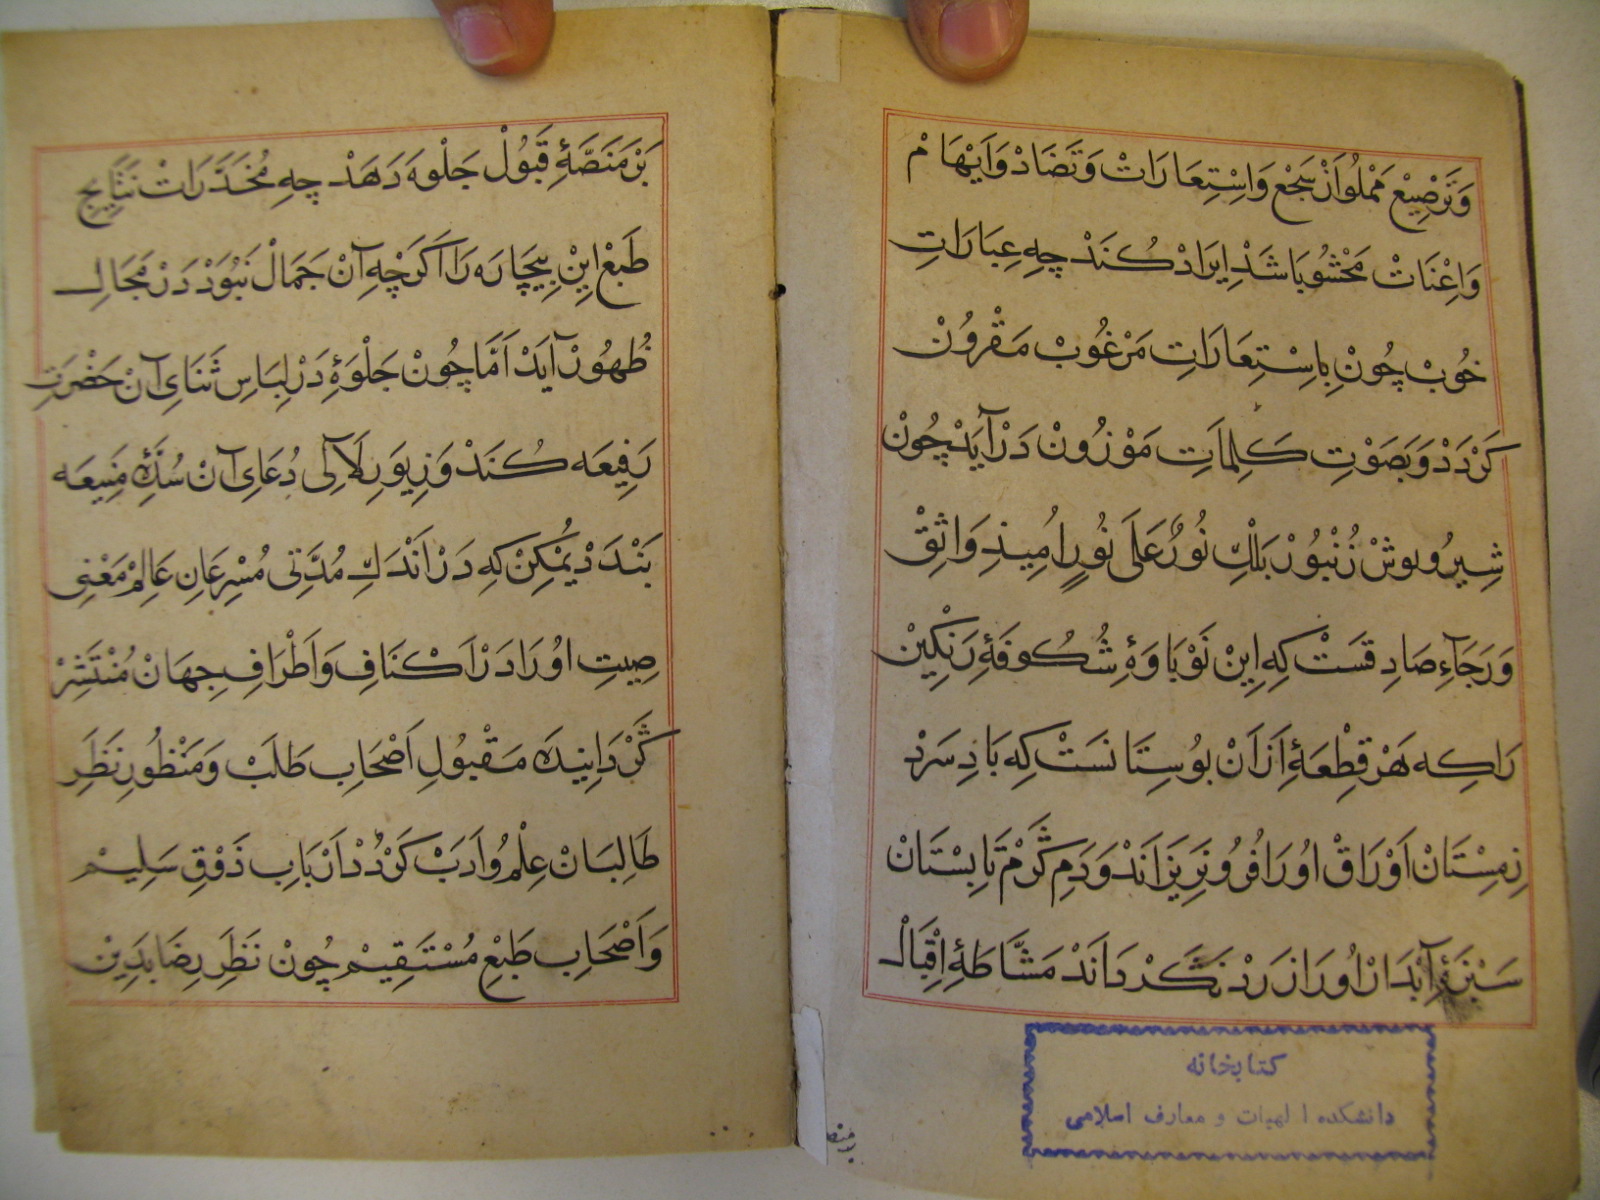 وَتَرْصِیعْ مَمْلُو اَزْ سَجْع وَاِسْتِعَارَاتْ وَتَضَادْ وَاَیْهَامْ
وَاِعْنَاتْ مَحْشُو بَاشَدْ اِیرَادْ کُنَدْ چِهِ عِبَارَاتِ
خُوبْ چُونْ بِاِسْتِعَارَاتِ مَرْغُوبْ مَقْرُونْ
کَرْدَدْ وَبِصَوْتِ کَلِمَاتِ مَوْزُونْ دَرْ آیَدْ چُونْ
شِیرُ ونوشْ زُنْبُورْ بَلْكِ نُورٌ عَلَی نُورٍ اُمِیذِ وَاثِقْ
وَرَجَآءِ صَادِقسَتْ کِهِ اِینْ نَوْبَاوَهٔ شُکُوفَهٔ رَنْکِینْ
رَاکِه هَرْ قِطْعَهٔ اَزَانْ بُوسِتَانسَتْ کِه بَادِ سَرْدِ
زِمِسْتَانْ اَوْرَاقْ اُورَا فُرُونَرِیزَانَدْ وَدَمِ گَرْمْ تَابِسْتَانْ
سَبْزَهٔ آبْدَارْ اُورَا زَرْدْ نَگَرْدَانَدْ مَشَّاطَهٔ اِقْبَالْ
کتابخانه
دانشکده الهیات و معارف اسلامی
بر منصه
بَرْ مَنَصَّهٔ قَبُولْ جَلْوَه دَهَدْ چِهِ مُخَدَّرَاتْ نَتَایِجِ
طَبْعِ اِینْ بِیچَارَه رَا اَکَرْچِهِ آنْ جَمَالْ نَبُوَدْ دَرْ مَجَالِ
ظُهُورْ آیَدْ اَمَّا چُونْ جَلْوَهٔ دَرْ لِبَاسِ ثَنَایِ آنْ حَضْرَتِ
رَفِیعَه کُنَدْ وَزِیوَرِ لَآلِی دُعَایِ آنْ سُدَّهٔ مَنِیعَه
بَنْدَدْ یُمْکِنْ کِهِ دَرْ اَنْدَكِ مُدَّتِی مُسْرِعَانِ عَالِمْ مَعْنِی
صِیتِ اُورَا دَرْ اَکْنَافِ وَاَطْرَافِ جِهَانْ مُنْتَشِرْ
گَرْدَانِیدَه مَقْبُولِ اَصْحَابِ طَلَبْ وَمَنْظُورِ نَظَرِ
طَالِبَانْ عِلْمُ وَاَدَبْ کَرْدَدْ اَرْبَابِ ذَوْقِ سَلِیمْ
وَاَصْحَابِ طَبْعِ مُسْتَقِیمْ چُونْ نَظَرِ رِضَا بَدِینْ